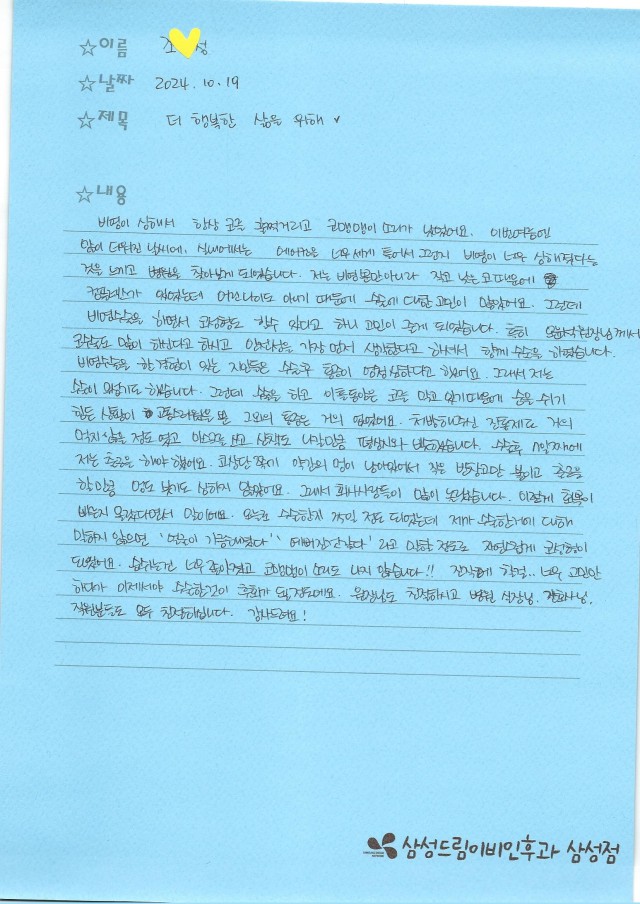 ☆이름 조 성
☆날짜 2024.10.19
☆제목 더 행복한 삶을 위해
☆내용
비염이 심해서 항상 코를 훌쩍거리고 코맹맹이 소리가 났었어요. 이번여름엔
많이 더워진 날씨에, 실내에서는 에어컨을 너무 세게 틀어서 그런지 비염이 너무 심해졌다는
것을 느끼고 병원을 찾아보게 되었습니다. 저는 비염뿐만아니라 작고 낮은 코 때문에
컴플렉스가 있었는데 어머나이도 있기 때문에 수술에 대한 고민이 많았어요. 그런데
비염수술을 하면서 코성형도 할수 있다고 하니 고민이 크게 되었습니다. 특히 원장님께서
코수술도 많이 하신다고 하시고 안전성을 가장 먼저 생각한다고 하셔서 함께 수술을 하였습니다.
비염수술을 한 경험이 있는 지인들은 수술후 통증이 엄청 심하다고 했어요. 그래서 저는
겁이 났기도 했습니다. 그런데 수술을 하고 이틀동안은 코를 막고 있기때문에 숨을 쉬기
힘든 상황이 고통스러웠을 뿐 그외의 통증은 거의 없었어요. 처방해주신 진통제도 거의
먹지 않을 정도 였고 마스크를 쓰고 산책도 나갈만큼 평상시와 비슷했습니다. 수술후 4일째에
저는 출근을 해야 했어요. 코상단 쪽에 약간의 멍이 남아있어서 작은 반창고만 붙이고 출근을
할만큼 멍도 붓기도 심하지 않았어요. 그래서 회사사람들이 많이 놀랬습니다. 이렇게 회복이
빠른지 몰랐다면서 말이에요. 오늘로 수술한지 2주일 정도 되었는데 제가 수술한거에 대해
말하지 않으면 '얼굴이 갸름해졌다' '예뻐진것같다' 라고 말할 정도로 자연스럽게 코성형이
되었어요. 숨쉬는건 너무 좋아졌고 코맹맹이 소리도 나지 않습니다!! 진작에 할걸.. 너무 고민만
하다가 이제서야 수술한것이 후회가 될 정도에요. 원장님도 친절하시고 병원 실장님, 간호사님,
직원분들도 모두 친절하십니다. 감사드려요!
삼성드림이비인후과 삼성점